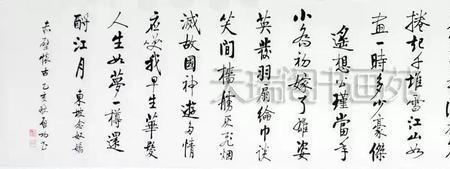 捲起千堆雪江山如
畫一時多少豪傑
遙想公瑾當年
小喬初嫁了雄姿
英發羽扇綸巾談
笑間檣艣灰飛烟
滅故國神遊多情
應笑我早生華髮
人生如夢一樽還
酹江月 東坡念奴嬌
赤壁懷古 乙亥秋
天瑞阁书画苑